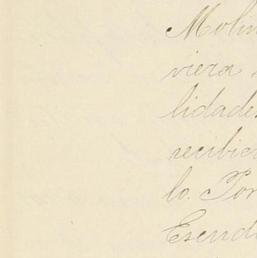 Molin
viera
lidades
recibie
lo. Por
Escud